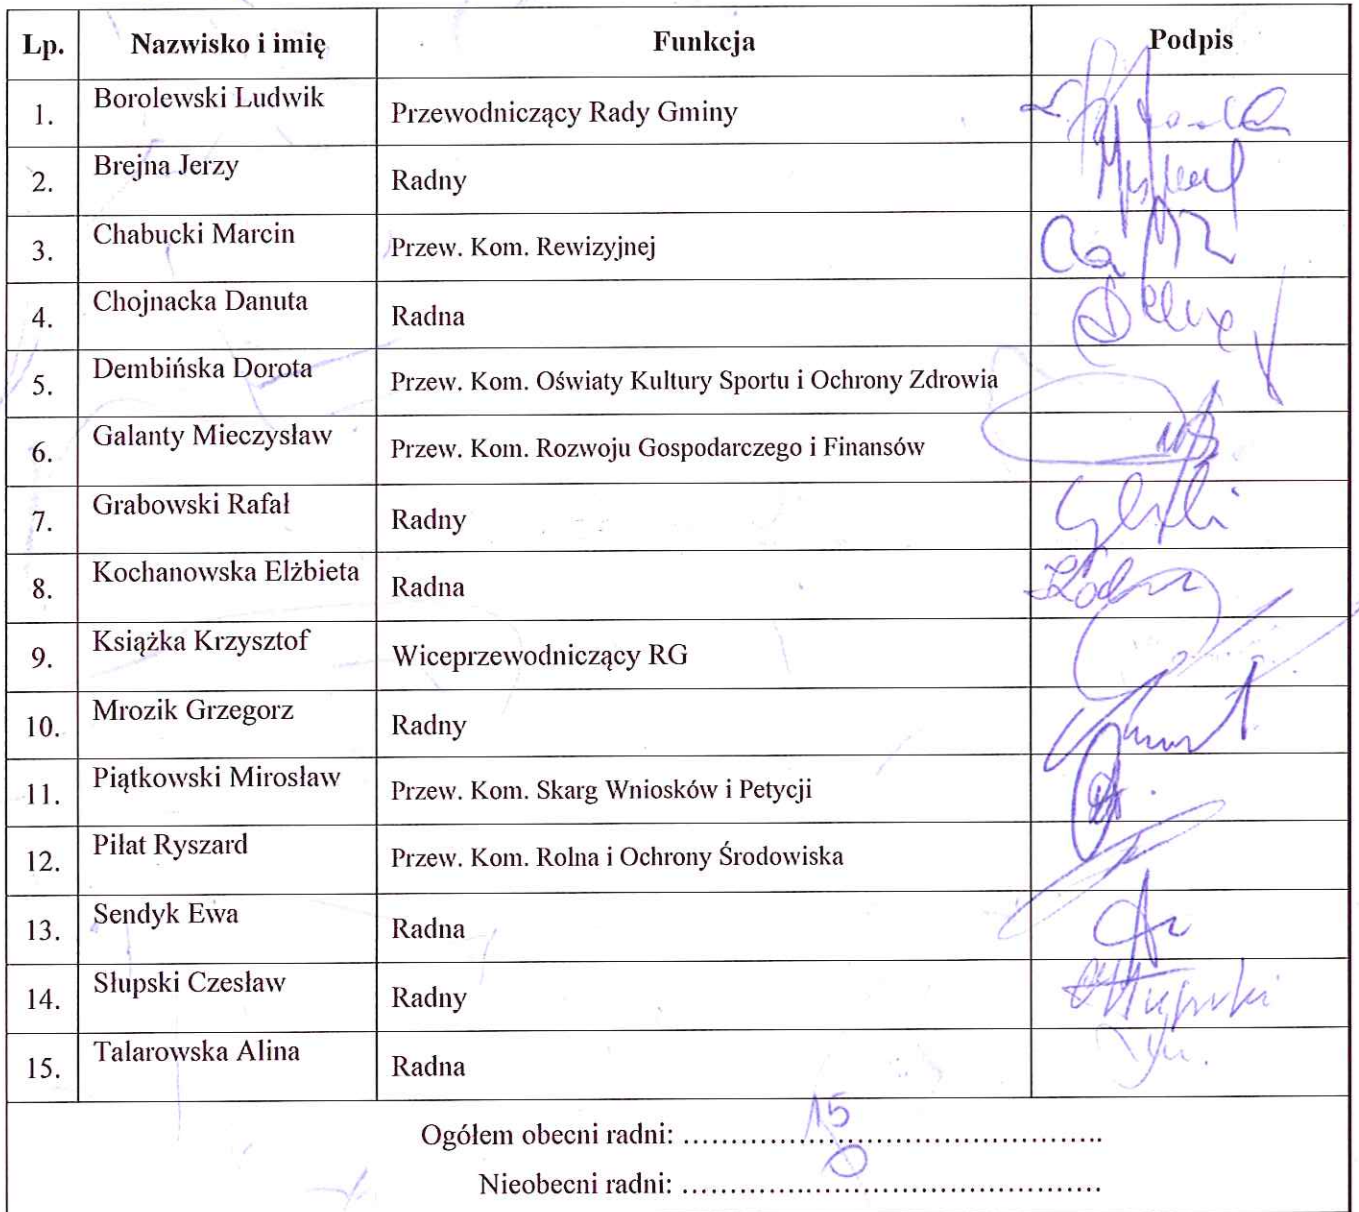 Lp. Nazwisko i imię Funkcja Podpis
1. Borolewski Ludwik Przewodniczący Rady Gminy
2. Brejna Jerzy Radny
3. Chabucki Marcin Przew. Kom. Rewizyjnej
4. Chojnacka Danuta Radna
5. Dembińska Dorota Przew. Kom. Oświaty Kultury Sportu i Ochrony Zdrowia
6. Galanty Mieczysław Przew. Kom. Rozwoju Gospodarczego i Finansów
7. Grabowski Rafał Radny
8. Kochanowska Elżbieta Radna
9. Książka Krzysztof Wiceprzewodniczący RG
10. Mrozik Grzegorz Radny
11. Piątkowski Mirosław Przew. Kom. Skarg Wniosków i Petycji
12. Piłat Ryszard Przew. Kom. Rolna i Ochrony Środowiska
13. Sendyk Ewa Radna
14. Słupski Czesław Radny
15. Talarowska Alina Radna
Ogółem obecni radni: 15
Nieobecni radni: 0